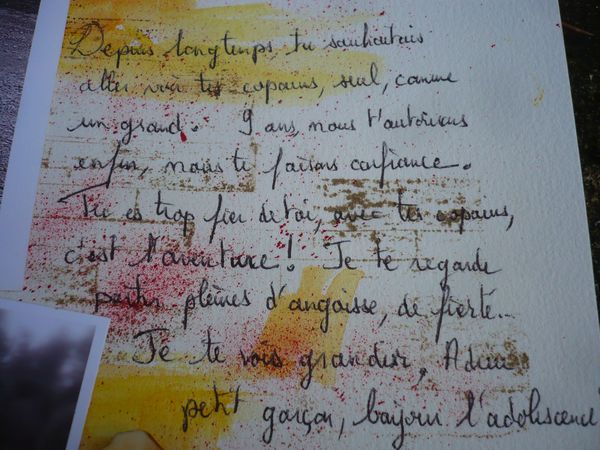 Depuis longtemps tu souhaitais
aller voir tes copains, seul, comme
un grand. 9 ans, nous t'autorisons
enfin, nous te faisons confiance.
Tu es trop fier de toi, avec tes copains,
c'est l'aventure! Je te regarde
partir pleines d'angoisse, de fierté...
Je te vois grandir, Adieu
petit garçon, bonjour l'adolescence